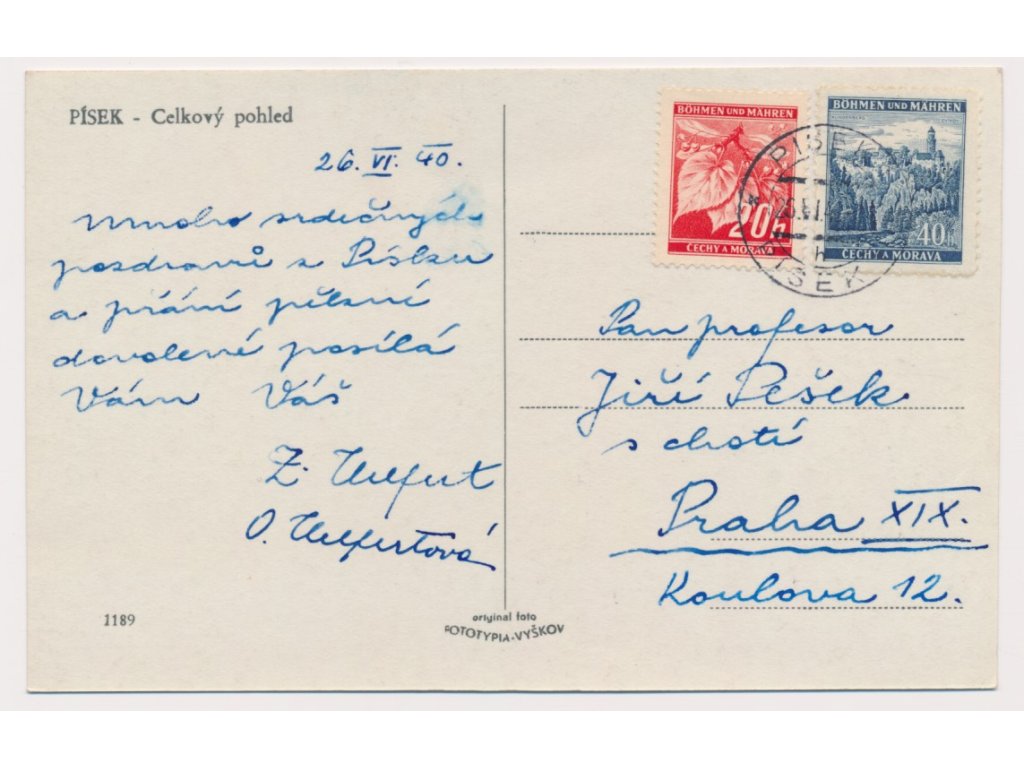 PÍSEK - Celkový pohled
26. VI. 40.
Mnoho srdečných
pozdravů z Písku
a přání pěkné
dovolené posílá
Vám Váš
Z. Helfert
O. Helfertová
1189
original foto
FOTOTYPIA-VYŠKOV
BÖHMEN UND MÄHREN
20h
ČECHY A MORAVA
BÖHMEN UND MÄHREN
40h
ČECHY A MORAVA
PISEK
26.VI.
PÍSEK
Pan profesor
Jiří Pešek
s chotí
Praha XIX.
Koulova 12.